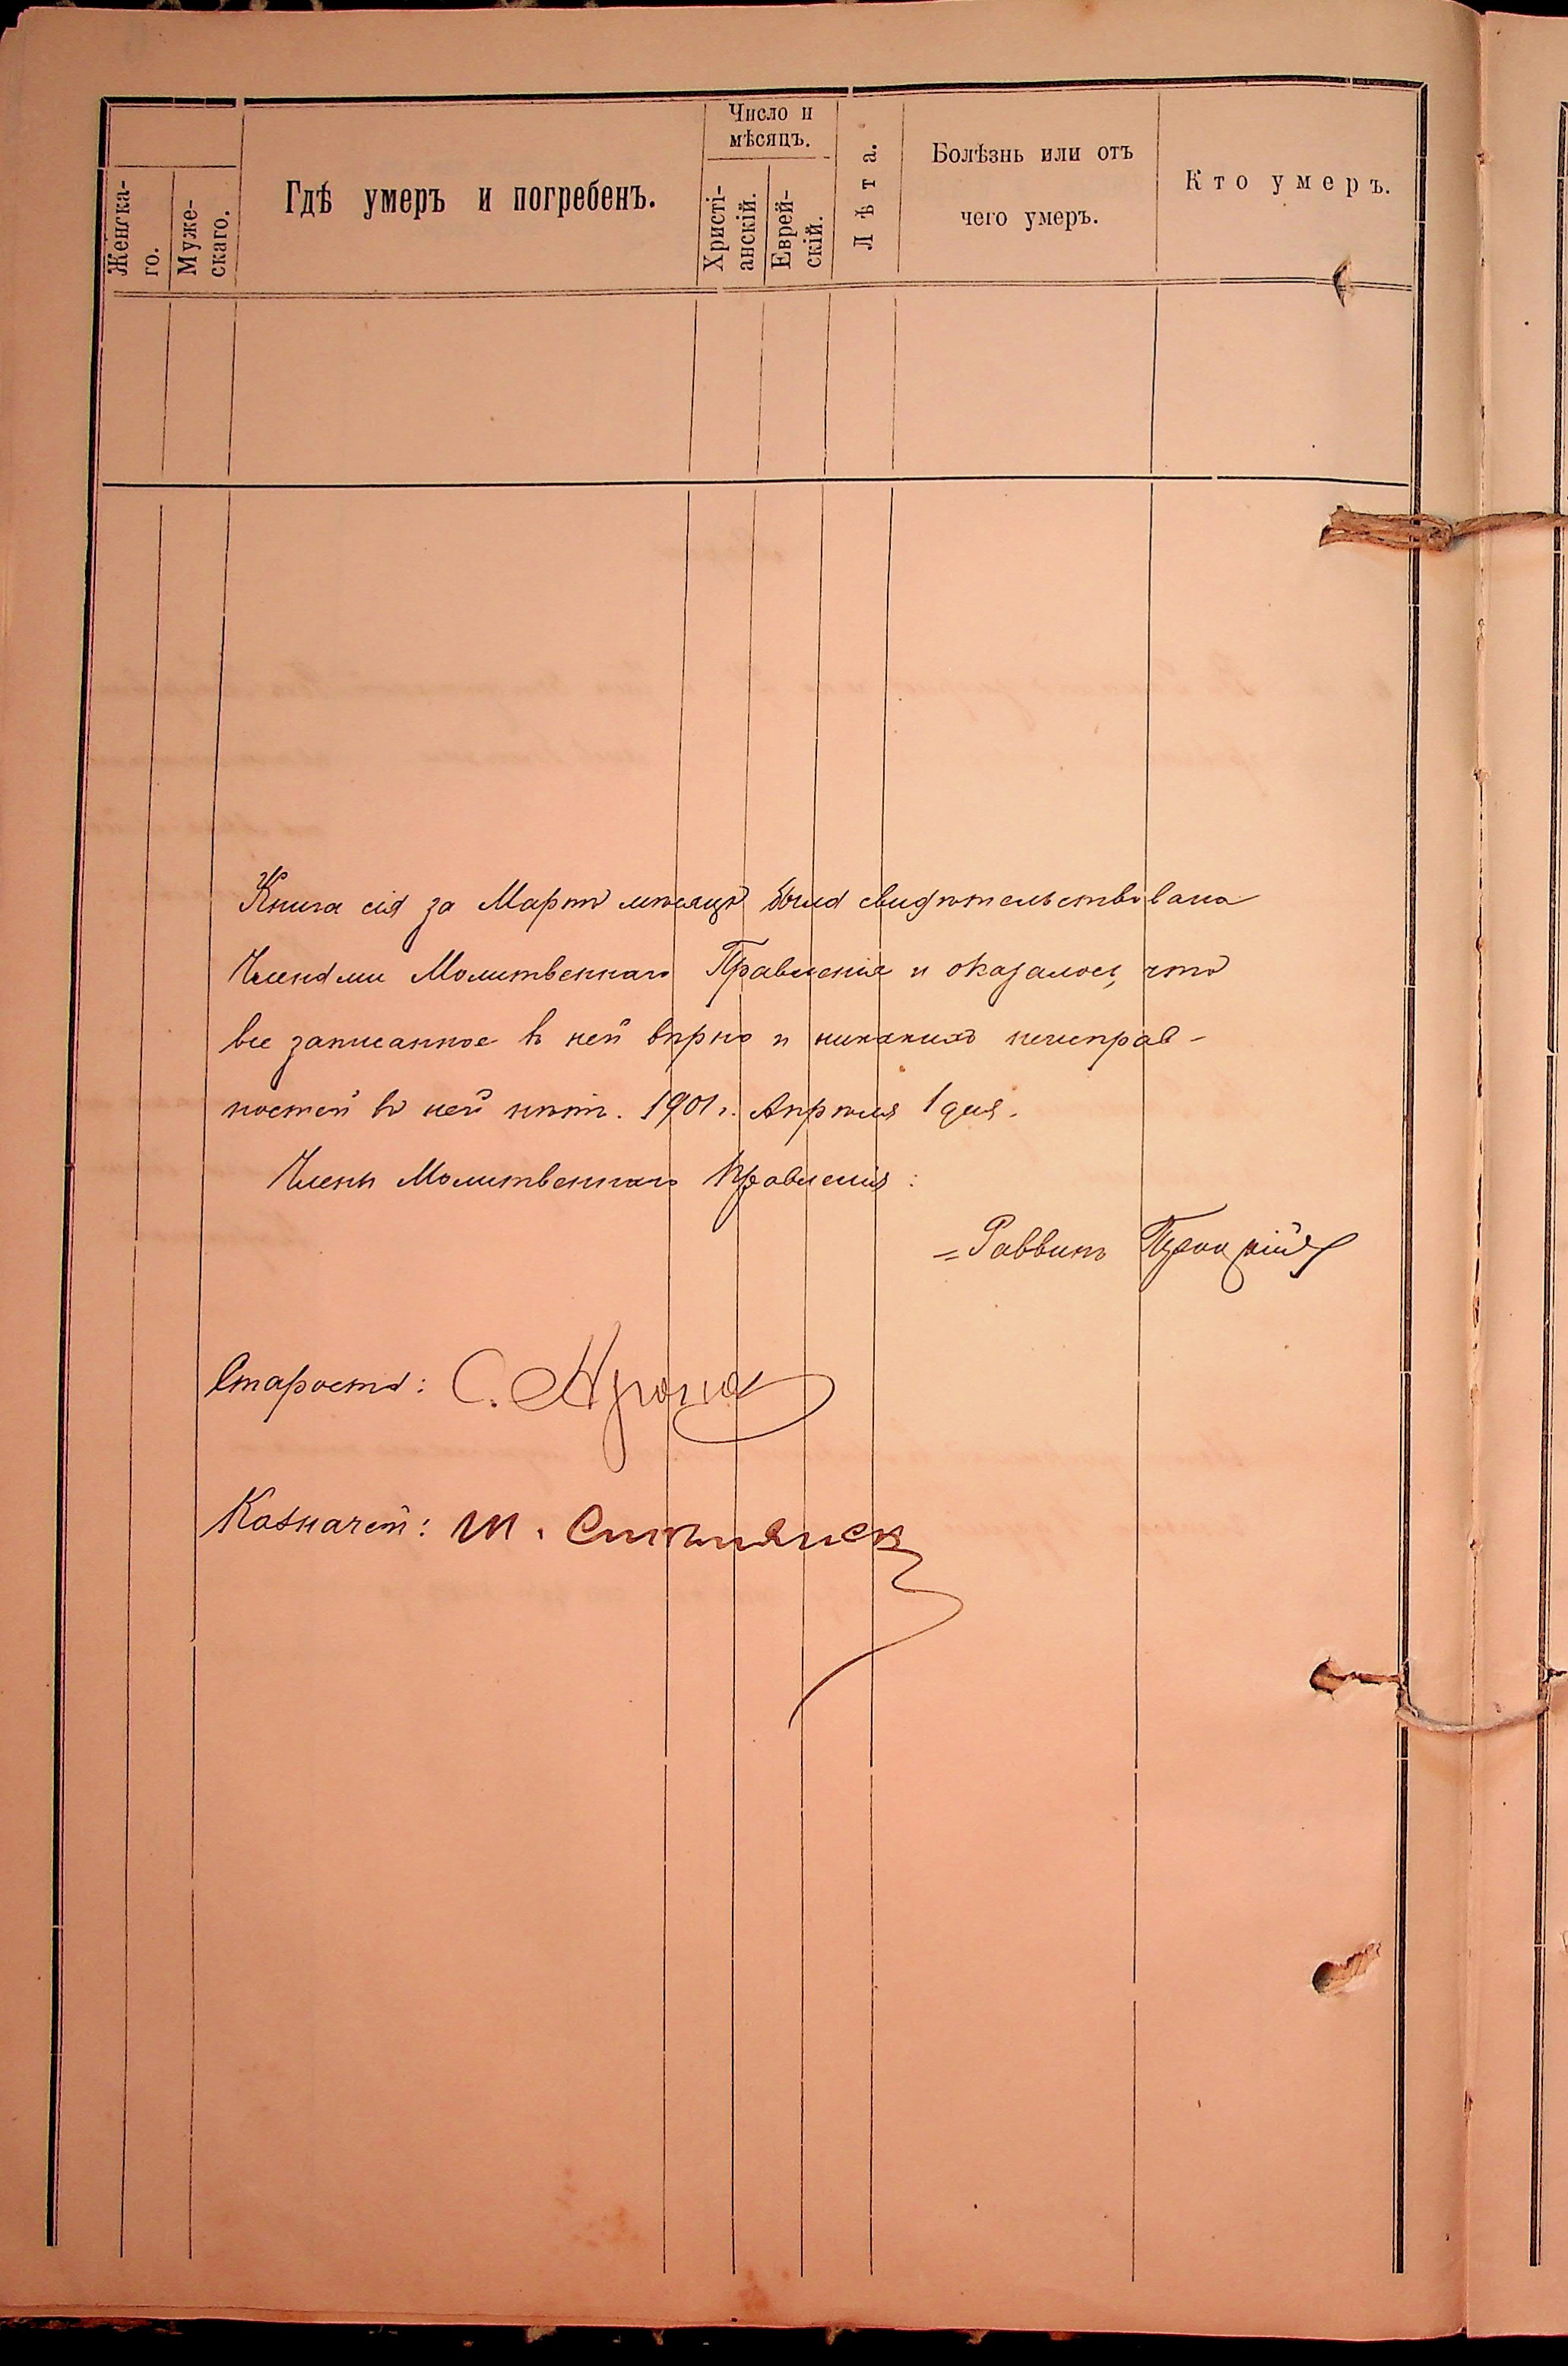 Женска-
го.
Муже-
скаго.
Гдѣ умеръ и погребенъ.
Число и
мѣсяцъ.
Христі-
анскій.
Еврей-
скій.
Лѣта.
Болѣзнь или отъ
чего умеръ.
Кто умеръ.
Книга сія за Мартъ мѣсяцъ была свидѣтельствована
Членами Молитвеннаго Правленія и оказалось, что
все записанное въ ней вѣрно и никакихъ неисправ-
ностей въ ней нѣтъ. 1901 г. Апрѣля 1 дня.
Члены Молитвеннаго Правленія:
Раввинъ
Староста: С.
Казначей: